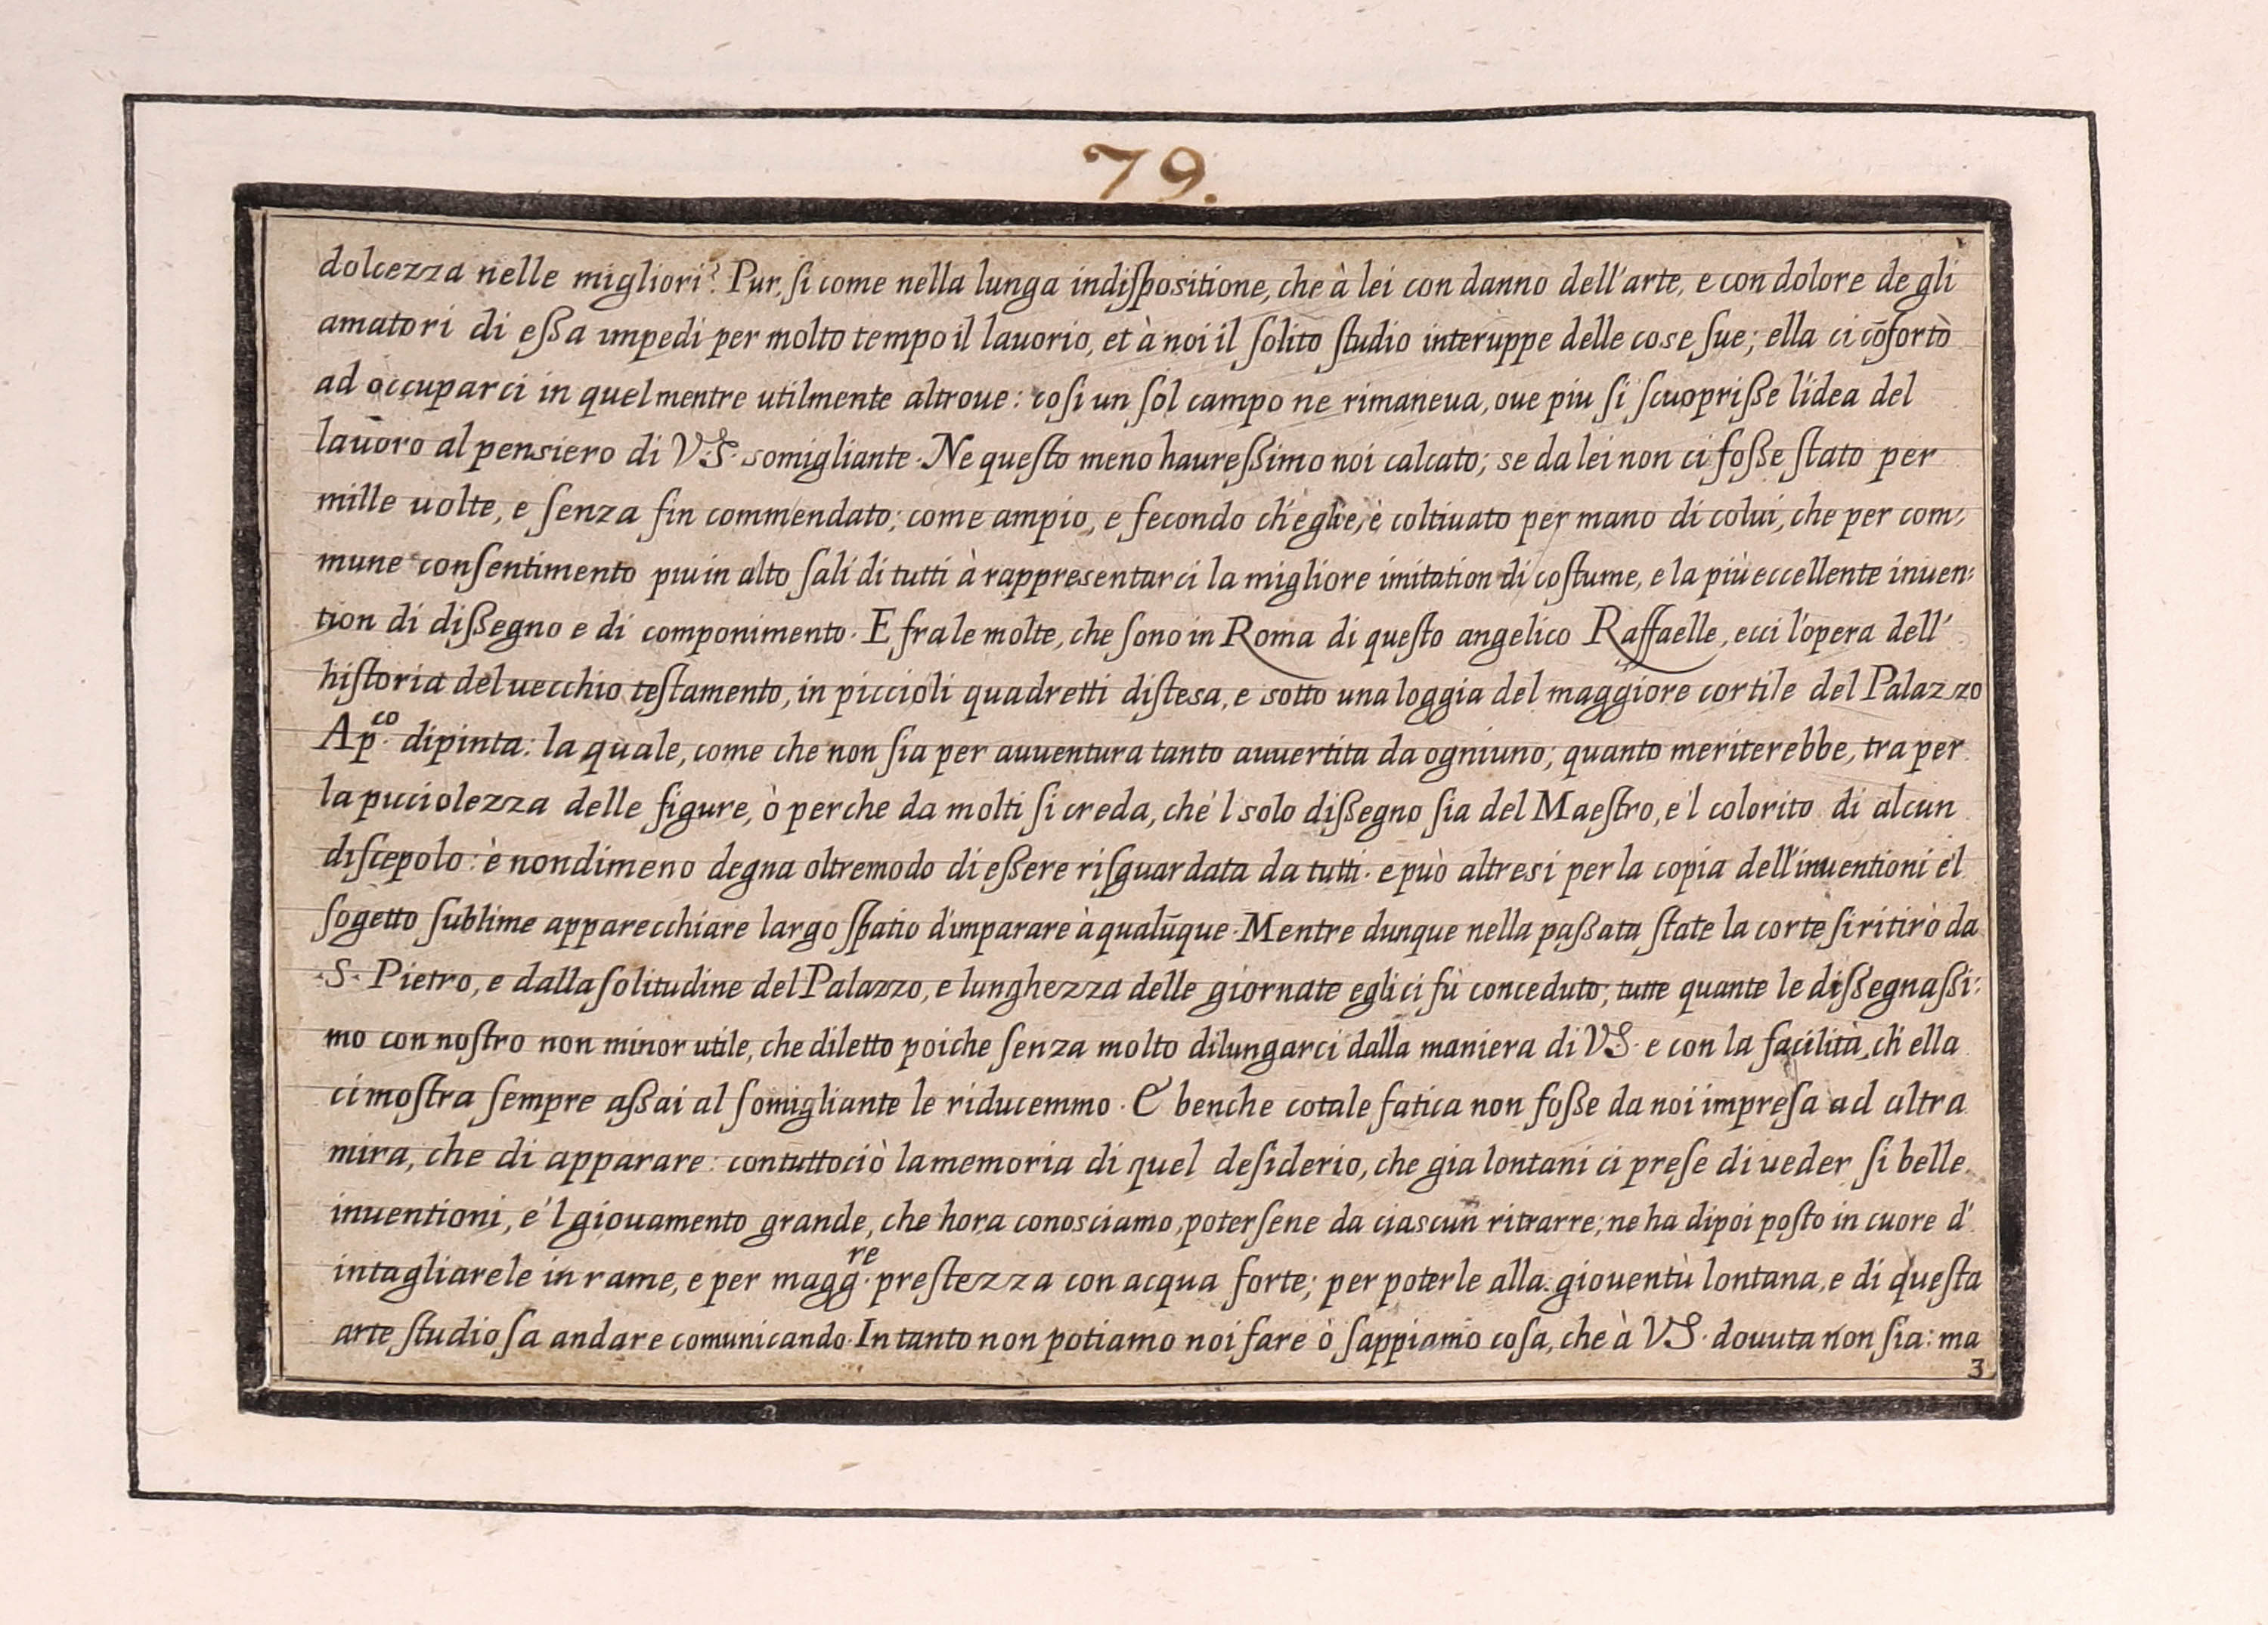 79.
dolcezza nelle migliori? Pur, ſi come nella lunga indiſpositione, che à lei con danno dell'arte, e con dolore de gli
amatori di eſſa impedi per molto tempo il lauorio, et à noi il ſolito ſtudio interuppe delle cose ſue; ella ci cōfortò
ad occuparci in quel mentre utilmente altroue: coſi un ſol campo ne rimaneua, oue piu ſi ſcuopriſſe l'idea del
lauoro al pensiero di V.S. somigliante. Ne queſto meno haureſſimo noi calcato; se da lei non ci foſſe ſtato per
mille uolte, e ſenza fin commendato; come ampio, e fecondo ch'egli è, è coltiuato per mano di colui, che per com:
mune conſentimento piu in alto ſali di tutti à rappresentarci la migliore imitation di coſtume, e la più eccellente inuen:
tion di diſſegno e di componimento. E fra le molte, che ſono in Roma di queſto angelico Raffaelle, ecci l'opera dell'
hiſtoria del uecchio teſtamento, in piccioli quadretti diſtesa, e sotto una loggia del maggiore cortile del Palazzo
Ap.co dipinta: la quale, come che non ſia per auuentura tanto auuertita da ogniuno; quanto meriterebbe, tra per
la picciolezza delle figure, ò perche da molti ſi creda, che'l solo diſſegno ſia del Maeſtro, e'l colorito di alcun
diſcepolo: è nondimeno degna oltremodo di eſſere riſguardata da tutti. e può altresi per la copia dell'inuentioni e'l
ſogetto ſublime apparecchiare largo ſpatio d'imparare à qualūque. Mentre dunque nella paſſata ſtate la corte ſi ritirò da
.S. Pietro, e dalla ſolitudine del Palazzo, e lunghezza delle giornate egli ci fù conceduto; tutte quante le diſſegnaſſi:
mo con noſtro non minor utile, che diletto poiche ſenza molto dilungarci dalla maniera di VS. e con la facilità, ch'ella
ci moſtra ſempre aſſai al ſomigliante le riducemmo. E benche cotale fatica non foſſe da noi impreſa ad altra
mira, che di apparare: contuttociò la memoria di quel deſiderio, che gia lontani ci preſe di ueder ſi belle
inuentioni, e'l giouamento grande, che hora conosciamo poterſene da ciascun ritrarre; ne ha dipoi poſto in cuore d'
intagliarele in rame, e per magg.re preſtezza con acqua forte; per poterle alla giouentù lontana, e di queſta
arte ſtudioſa andare comunicando. In tanto non potiamo noi fare ò ſappiamo coſa, che à VS. douuta non ſia: ma
3